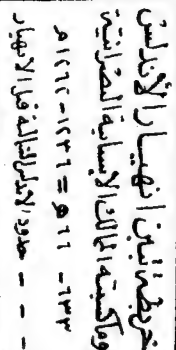 خريطة تبين انهيار الأندلس
وما كسبته الممالك الاسبانية النصرانية
٦٣٣ - ٦٦ ه = ١٢٣٦ - ١٢٦٨ م
- - - حدود الاندلس الثالثة قبل الانهيار